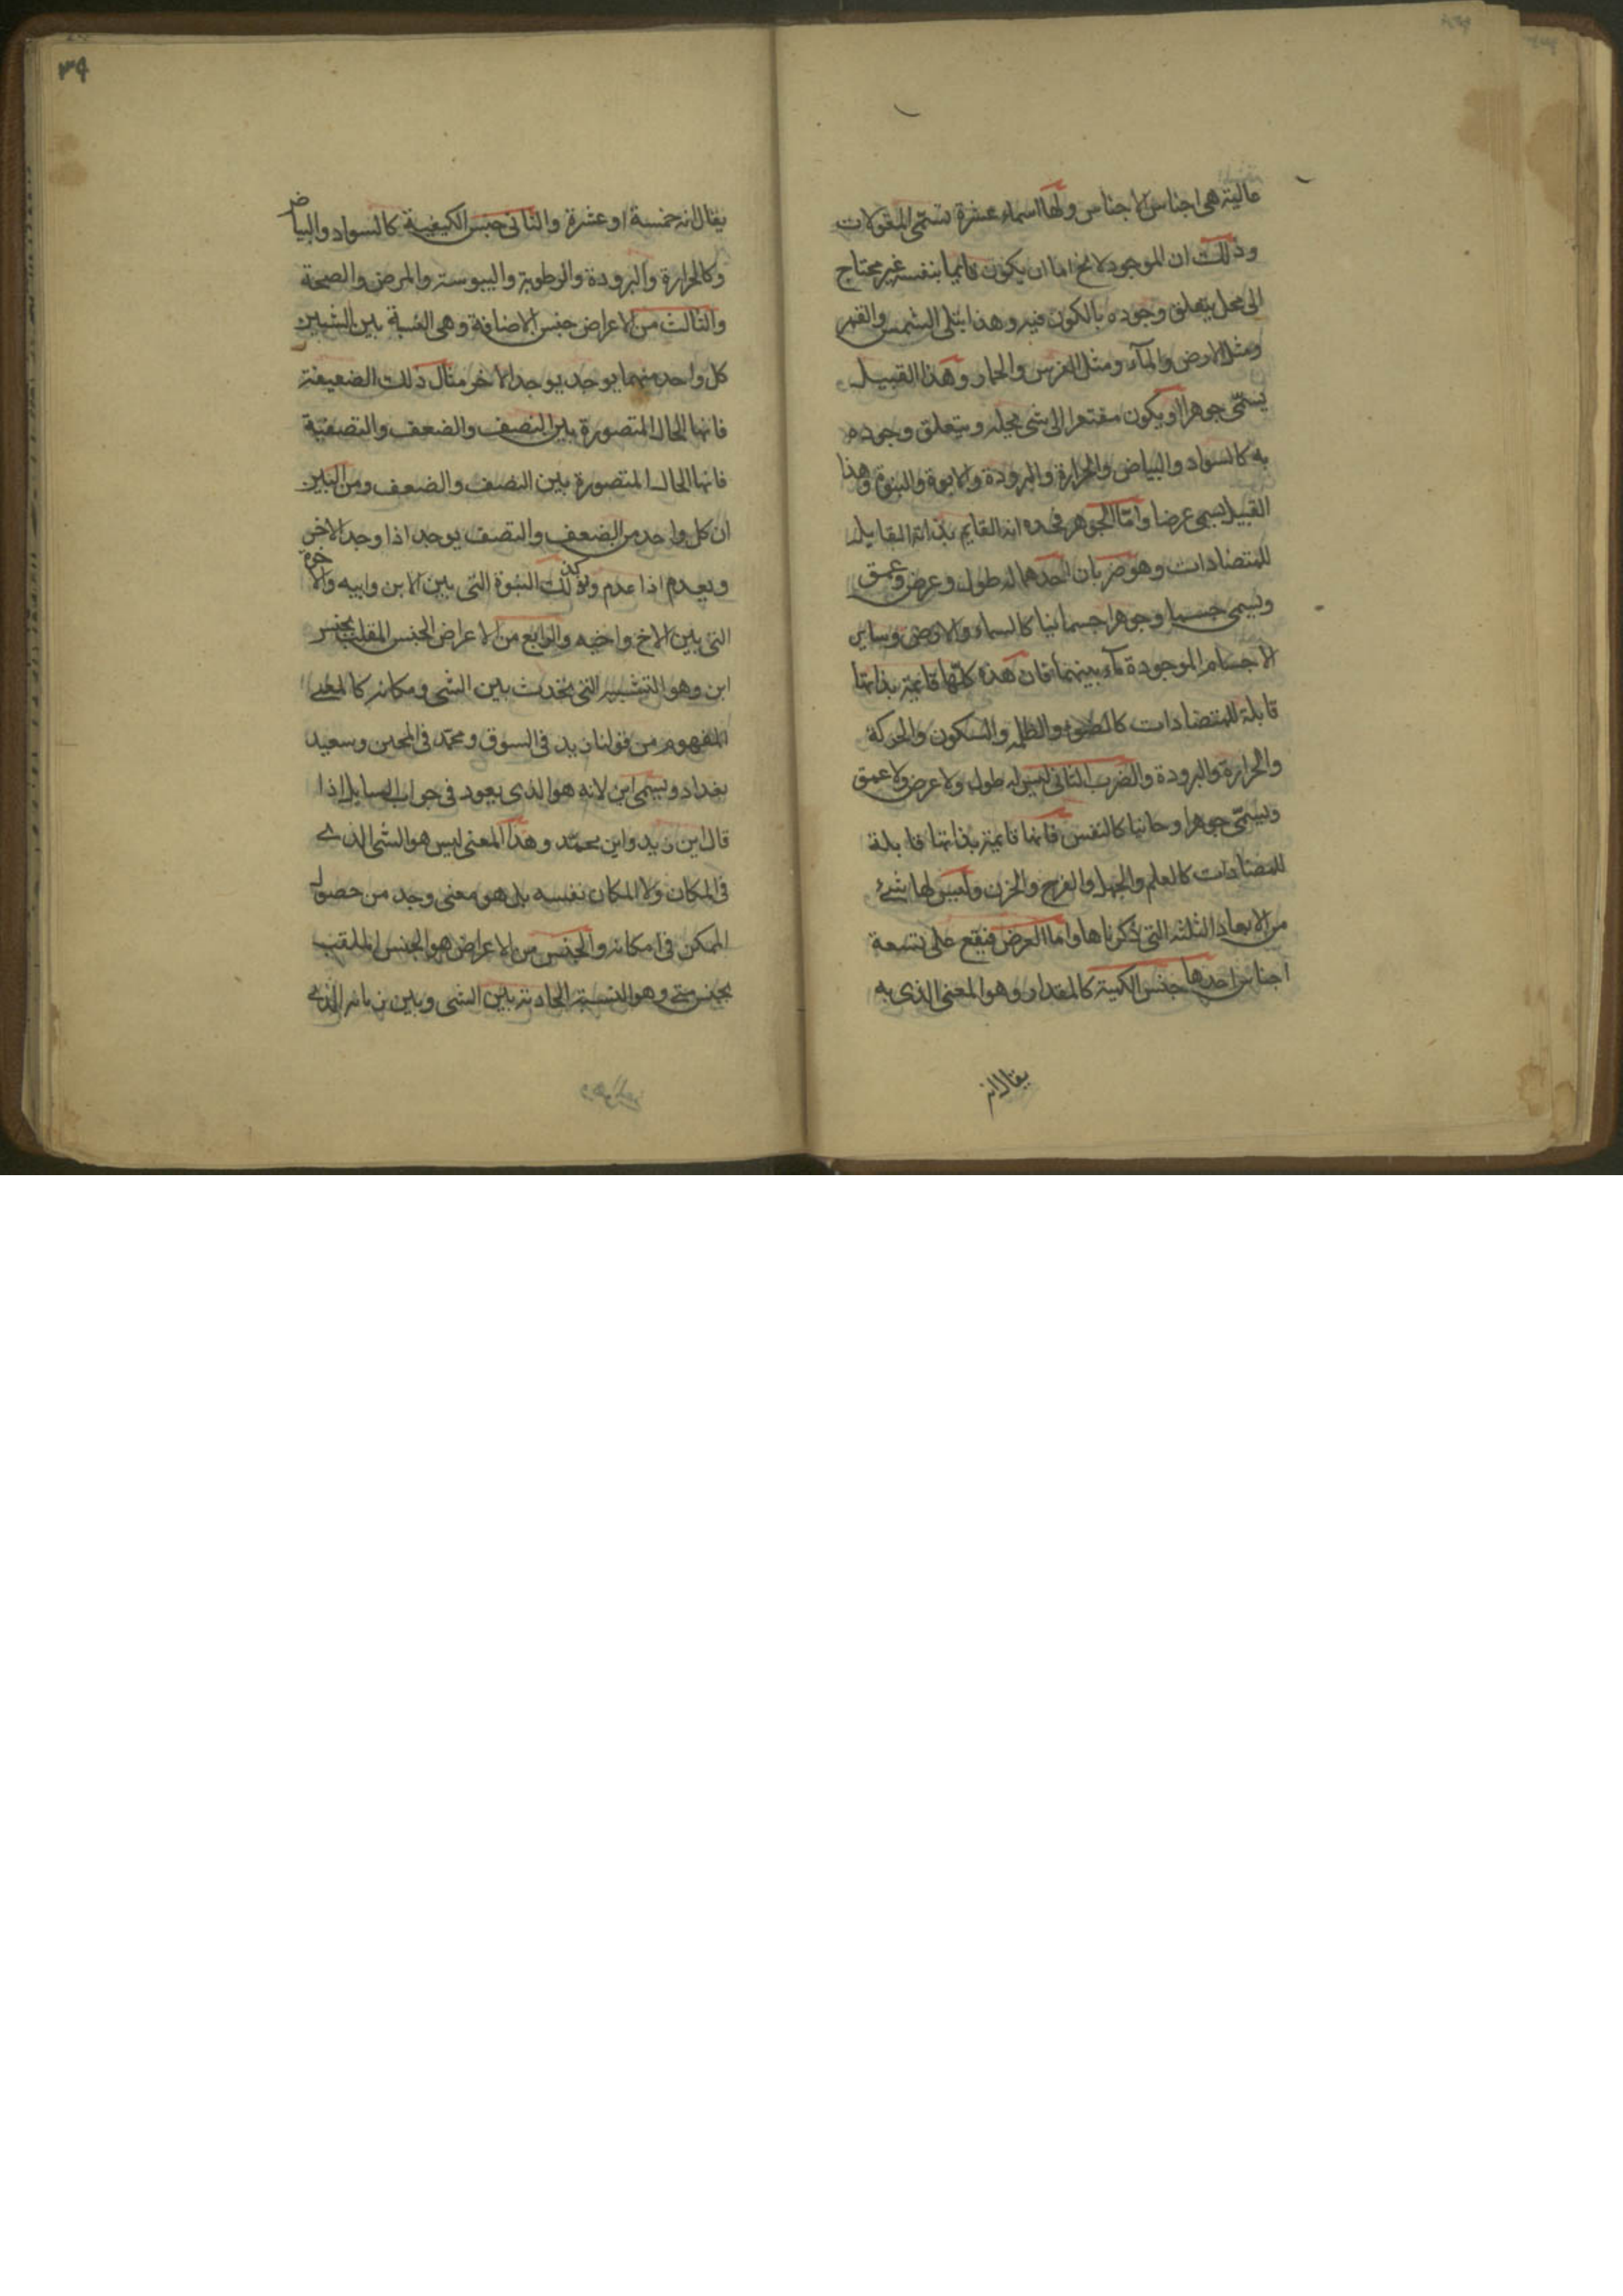 عالية هى اجناس الاجناس ولها اسماء عشرة تسمّى المقولات
وذلك ان الموجود لا يخ اما ان يكون قايما بنفسه غير محتاج
الى محل يتعلق وجوده بالكون فيه وهذا مثل الشمس والقمر
ومثل الارض والمآء ومثل الفرس والحمار وهذا القبيل
يسمّى جوهرا او يكون مفتقرا الى شى يحله ويتعلق وجوده
به كالسواد والبياض والحرارة والبرودة والابوة والبنوة وهذا
القبيل يسمى عرضا وامّا الجوهر فحده انه القايم بذاته القابل
للمتضادات وهو ضربان احدهما له طول وعرض وعمق
ويسمى جسما وجوهرا جسمانيا كالسماء والارض وساير
الاجسام الموجودة بينهما فان هذه كلّها قايمة بذاتها
قابلة للمتضادات كالضوء والظلمه والسكون والحركة
والحرارة والبرودة والضرب الثانى ليس له طول ولا عرض ولا عمق
ويسمّى جوهرا روحانيا كالنفس فانها قايمة بذاتها قابلة
للمتضادات كالعلم والجهل والفرح والحزن وليس لها شئ
من الابعاد الثلثه التى ذكرناها واما العرض فيقع على تسعة
اجناس احدها جنس الكمية كالمقدار وهو المعنى الذى به
يقال انه
٣٩
يقال انه خمسة او عشرة والثانى جنس الكيفية كالسواد والبياض
وكالحرارة والبرودة والرطوبة واليبوسة والمرض والصحة
والثالث من الاعراض جنس الاضافة وهى النسبة بين الشيين
كل واحد منهما يوجد بوجد الاخر مثال ذلك الضعيفة
فانها الحال المتصورة بين النصف والضعف والنصفية
فانها الحال المتصورة بين النصف والضعف ومن البين
ان كل واحد من الضعف والنصف يوجد اذا وجد الاخر
ويعدم اذا عدم وكذلك البنوة التى بين الابن وابيه والاخوة
التى بين الاخ واخيه والرابع من الاعراض الجنس الملقب بجنس
اين وهو النسبة التى تحدث بين الشى ومكانه كالمعنى
المفهوم من قولنا زيد فى السوق ومحمّد فى وسعيد
بغداد ويسمى اين لانه هو الذى يعود فى جواب السايل اذا
قال اين زيد واين محمّد وهذا المعنى ليس هو الشى الذى
فى المكان ولا المكان نفسه بل هو معنى وجد من حصول
الممكن فى مكانه والخامس من الاعراض هو الجنس الملقب
بجنس متى وهو النسبة الحادثة بين الشى وبين زمانه الذى